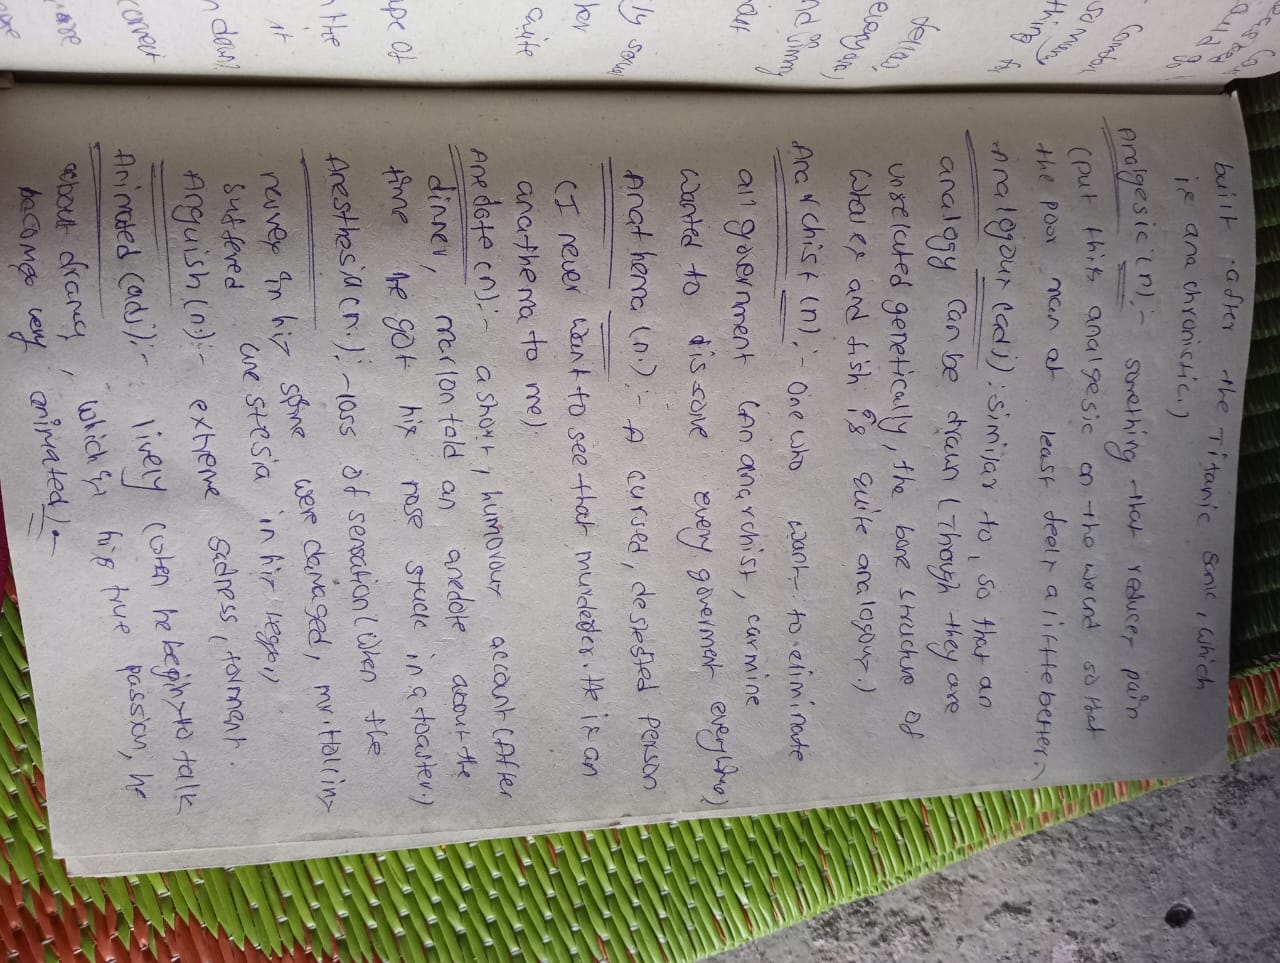 built after the Titanic sunk, which
is anachronistic.)
Analgesic (n):- something that reduces pain
(put this analgesic on the wound so that
the poor man at least feels a little better.)
Analogour (adj): similar to, so that an
analogy can be drawn (Though they are
unrelated genetically, the bone structure of
whales and fish is quite analogour.)
Anarchist (n):- one who want to eliminate
all goverment (An anarchist, carmine
wanted to dissolve every goverment everywhere)
Anathema (n.):- A cursed, detested person
(I never want to see that murderer. He is an
anathema to me).
Anedote (n):- a short, humorour account (After
dinner, marlon told an anedote about the
time he got his nose stuck in a toaster.)
Anesthesia (n.):- loss of sensation (when the
nerves in his spine were damaged, mr. Hallins
suffered anestesia in his legs,)
Anguish (n.):- extreme sadness, torment.
Animated (adj):- lively (when he begins to talk
about drama, which is his true passion, he
becomes very animated)